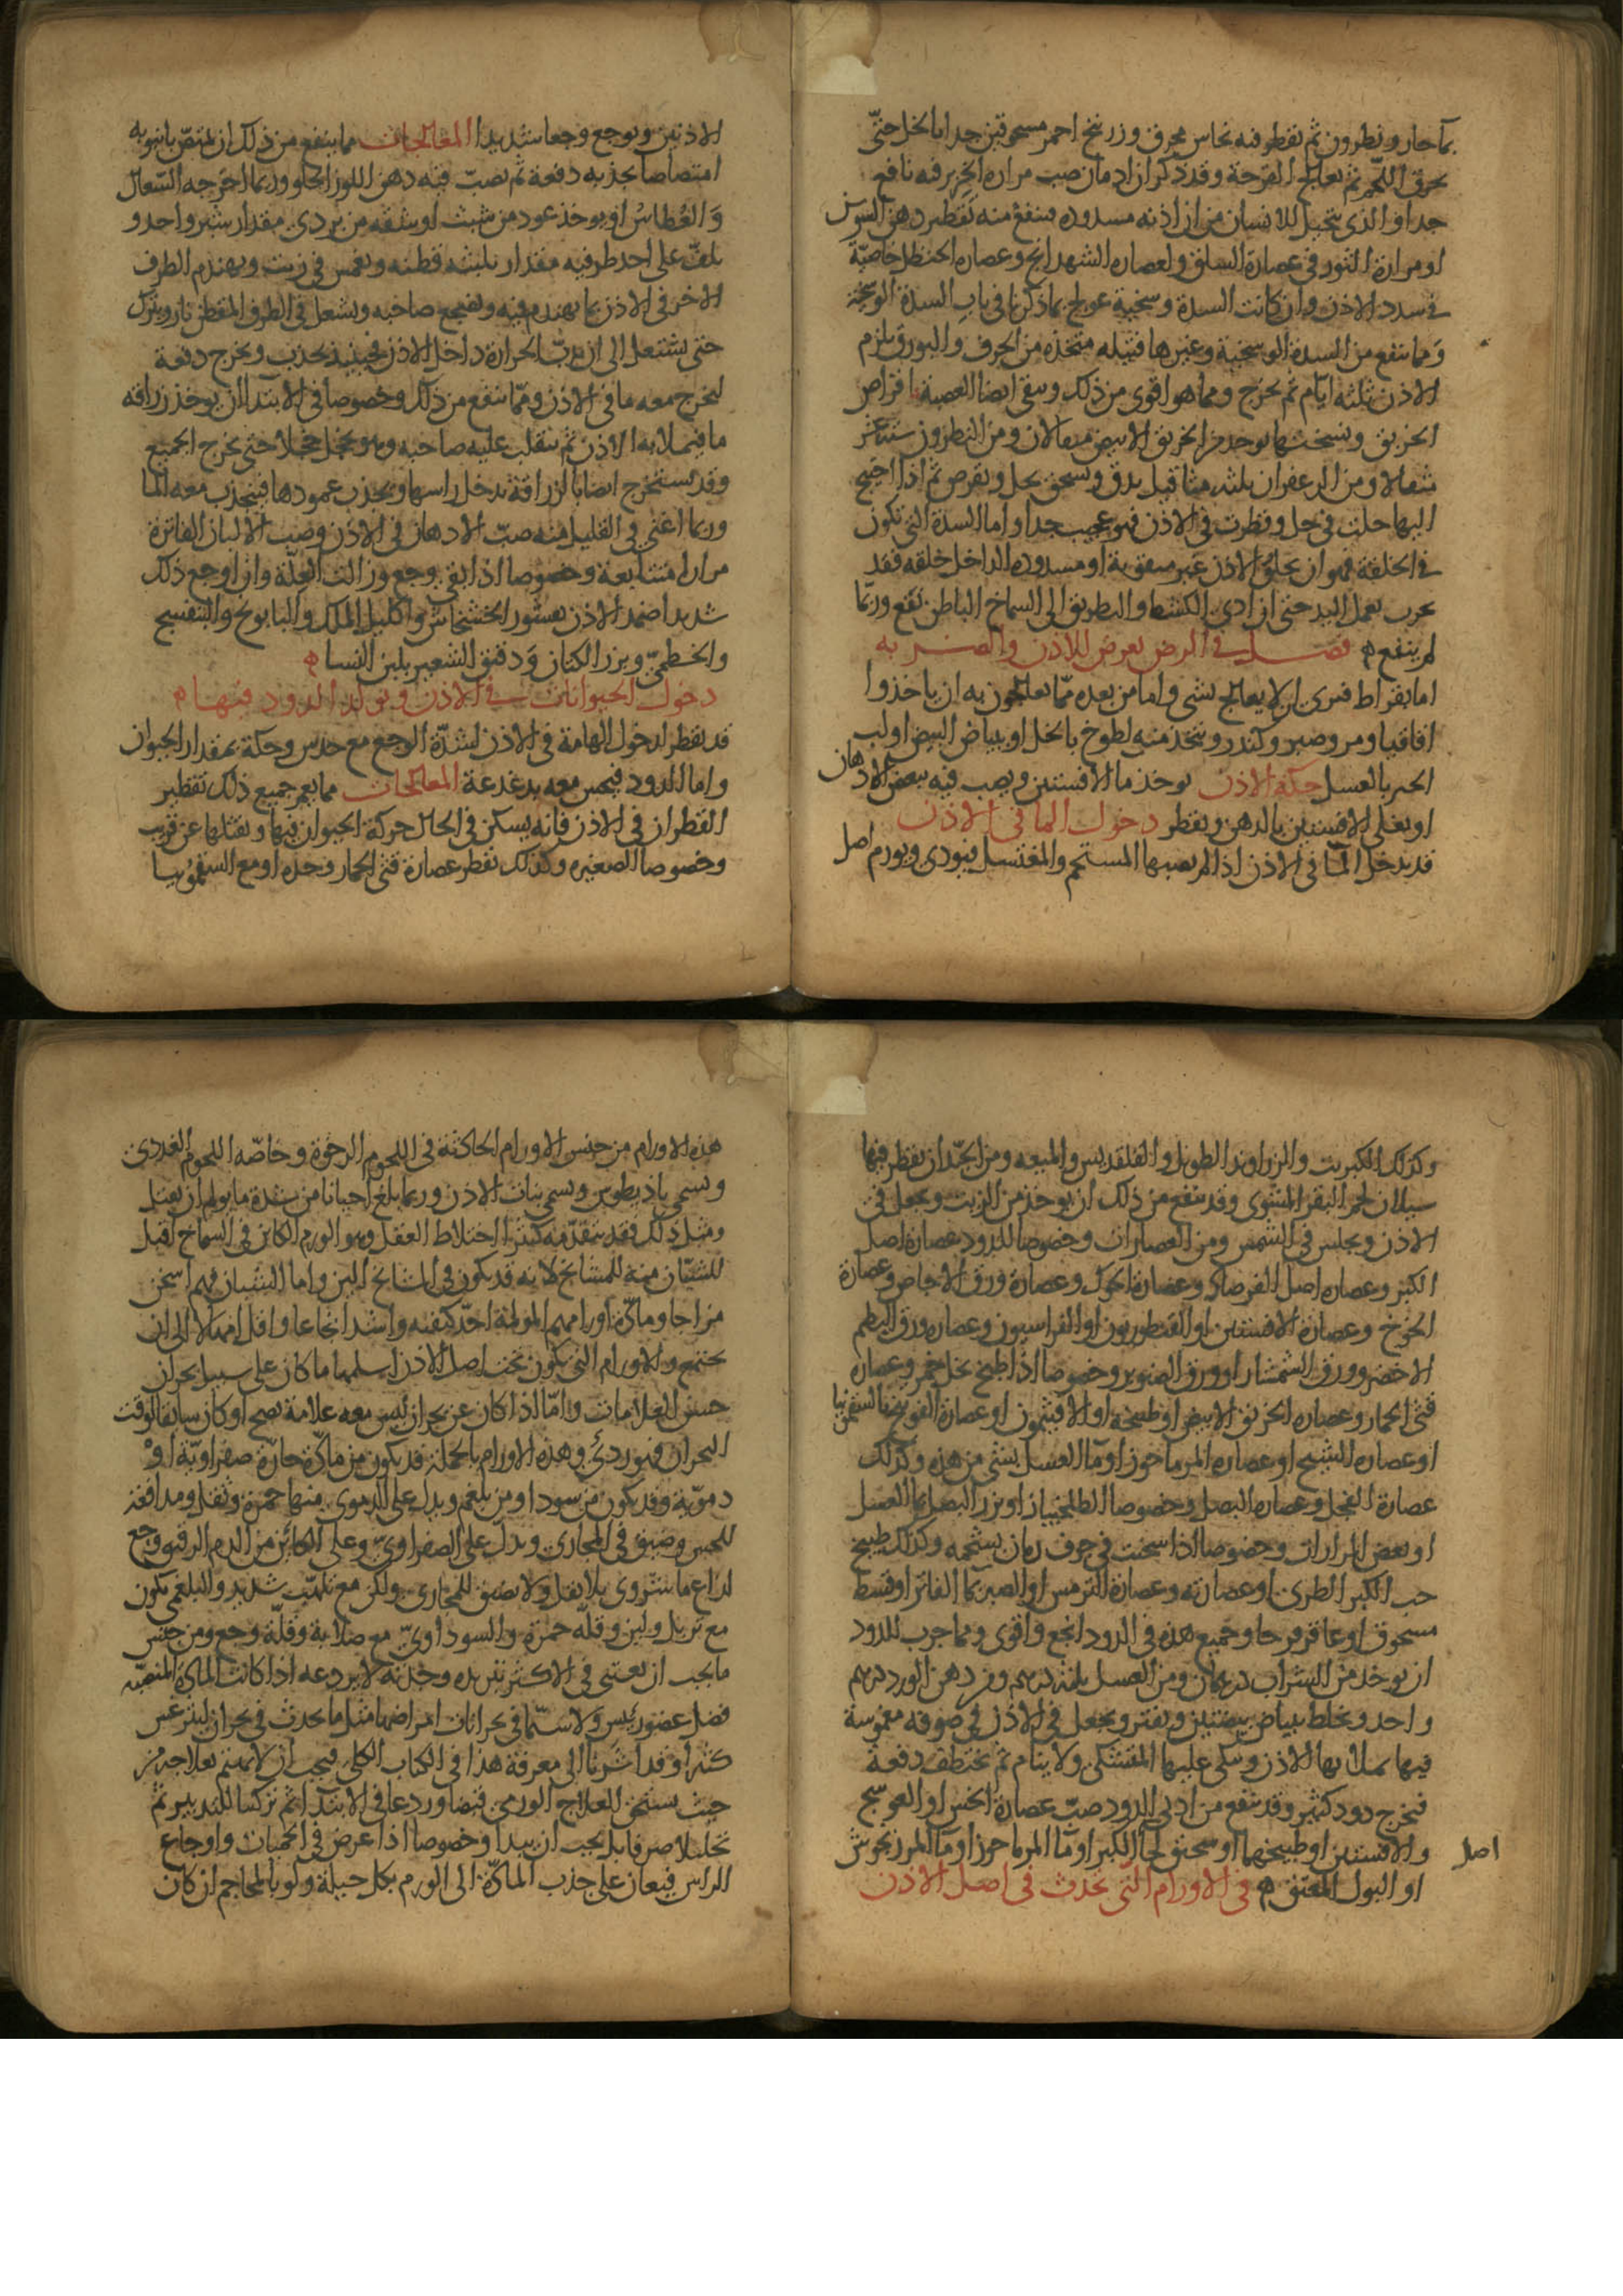 بما حار ونطرون ثم يقطر فيه نحاس محرق وزرنيخ احمر مسحوقين جدا بالخل حتى
يحرق اللحم ثم يعالج القرحة وقد ذكر ان ادمان صب مرارة الخنزير فيه نافع
جدا والذى يتخيل للانسان من ان اذنه مسدوده ينفع منه تقطير دهن السوسن
او مرارة الثور فى عصارة السلق ولعصاره الشهدانج وعصاره الحنظل خاصية
فى سدد الاذن وان كانت السدة وسخية عولج بما ذكرنا فى باب السدة الوسخية
ومما ينفع من السدة الوسخية وغيرها فتيله متخذه من الحرف والبورق يلزم
الاذن ثلثه ايام ثم يخرج ومما هو اقوى من ذلك وينقى ايضا العصبة اقراص
الخربق ونسختها يوخذ من الخربق الابيض مثقالان ومن النطرون ستة عشر
مثقالا ومن الزعفران ثلثه مثاقيل يدق ويسحق بخل ويقرص ثم اذا احتيج
اليها حلت فى خل وقطرت فى الاذن فهو عجيب جدا واما السدة التى تكون
فى الخلقة فهو ان يخلق الاذن غير مثقوبة او مسدوده الداخل خلقه فقد
جرب بعمل اليد حتى ان ادى الكشط والتطريق الى السماخ الباطن نفع وربما
لم ينفع ه فصل فى الرض يعرض للاذن والضربه
اما بقراط فيرى ان لا يعالج بشى واما من بعده مما يعالجون به ان ياخذوا
اقاقيا ومر وصبر وكندر ويتخذ منه لطوخ بالخل او ببياض البيض او لب
الخبز بالعسل حكة الاذن يوخذ ما الافسنتين ويصب فيه ببعض الادهان
او يغلى الافسنتين بالدهن ويقطر دخول الما فى الاذن
قد يدخل الما فى الاذن اذا لم يصبها المستحم والمغتسل فيوذى ويورم اصل
الاذنين ويوجع وجعا شديدا المعالجات مما ينفع من ذلك ان يمتص بانبوبه
امتصاصا يجذبه دفعة ثم يصب فيه دهن اللوز الحلو وربما اخرجه السعال
والعطاس او يوخذ عود من شبث او شقه من بردى مقدار شبر واحد و
يلف على احد طرفيه مقدار ثلثيه قطنه ويغمس فى زيت ويهندم الطرف
الاخر فى الاذن بما يهندم فيه ويضجع صاحبه ويشعل فى الطرف المقطن نار ويترك
حتى يشتعل الى ان يدب الحرارة داخل الاذن فحينيذ يجذب ويخرج دفعة
ليخرج معه ما فى الاذن ومما ينفع من ذلك وخصوصا فى الابتدا ان يوخذ زراقه
ما فيملا به الاذن ثم ينقلب عليه صاحبه وهو يحجل حجلا حتى يخرج الجميع
وقد يستخرج ايضا بالزراقة يدخل راسها ويجذب عمودها فينجذب معه الما
وربما اغنى فى القليل منه صب الادهان فى الاذن وصب الالبان الفاترة
مرارا متتابعة وخصوصا اذا بقى وجع وزالت العلة وان اوجع ذلك
شديدا ضمد الاذن بقشور الخشخاش واكليل الملك والبابونج والبنفسج
والخطمى وبزر الكتان ودقيق الشعير بلبن النسا ه
دخول الحيوانات فى الاذن وتولد الدود فيها ه
قد يفطن لدخول الهامة فى الاذن لشدة الوجع مع خدش وحكة بمقدار الحيوان
واما الدود فيحس معه بدغدغة المعالجات مما يعم جميع ذلك تقطير
القطران فى الاذن فانه يسكن فى الحال حركة الحيوان فيها ويقتلها عن قريب
وخصوصا الصغيره وكذلك تقطر عصارة قثى الحمار وحده او مع السقمونيا
وكذلك الكبريت والزراوند الطويل والقلقديس والميعه ومن الجيد ان يقطر فيها
سيلان لحم البقر المشوى وقد ينفع من ذلك ان يوخذ من الزيت ويجعل فى
الاذن ويجلس فى الشمس ومن العصارات وخصوصا للدود عصارة اصل
الكبر وعصاره اصل الفرصاد وعصارة وعصارة ورق الاجاص وعصارة
الخوخ وعصارة الافسنتين او القنطوريون او الفراسيون وعصاره ورق البطم
الاخضر وورق الشمشار او ورق الصنوبر وخصوصا اذا طبخ بخل خمر وعصاره
قثى الحمار وعصاره الخربق الابيض او طبيخه او الافيثمون او عصارة الفوتنج بالسقمونيا
او عصاره الشيح او عصاره المرماحوز او ما العسل بشى من هذه وكذلك
عصارة الفجل وعصاره البصل وخصوصا او بزر البصل بما العسل
او بعض المرارات وخصوصا اذا سخنت فى جوف رمان بشحمه وكذلك طبيخ
حب الكبر الطرى او عصارته وعصارة الترمس او الصبر بما الفاتر او قسط
مسحوق او عاقرقرحا وجميع هذه فى الدود انجع واقوى ومما جرب للدود
ان يوخذ من الشراب درهمان ومن العسل ثلثة دراهم ومن دهن الورد درهم
واحد ويخلط ببياض بيضتين ويفتر ويجعل فى الاذن فى صوفه مغموسة
فيها يملا بها الاذن ويتكى عليها المشتكى ولا ينام ثم تختطف دفعة
فيخرج دود كثير وقد ينفع من اذى الدود صب عصارة الخس او العوسج
والافسنتين او طبيخها او سحيق لحا اصل الكبر او ما المرماحوز او ما المرزنجوش
او البول المعتق ه فى الاورام التى تحدث فى اصل الاذن
هذه الاورام من جنس الاورام الحادثة فى اللحوم الرخوة وخاصه اللحوم الغددى
ويسمى باذيطوس ويسمى بنات الاذن وربما بلغ احيانا من شدة ما يولم ان يقتل
ومثل ذلك فقد يتقدمه كثيرا اختلاط العقل وهو الورم الكاين فى السماخ اقتل
للشبان منه للمشايخ لانه قد يكون فى المشايخ الين واما الشبان فهم اسخن
مزاجا ومادة اورامهم المولمة احد كيفيه واشد ايجاعا واقل امهالا الى ان
يجتمع والاورام التى تكون تحت اصل الاذن اسلمها ما كان على سبيل بحران
حسن العلامات واما اذا كان عن بحران ليس معه علامة نضج او كان سابقا لوقت
البحران فهو ردى وهذه الاورام بالجملة قد يكون من مادة حارة صفراوية او
دموية وقد يكون من سودا ومن بلغم ويدل على الدموى منها حمرة وثقل ومدافعة
للحس وضيق فى المجارى ويدل على الصفراوى وعلى الكاين من الدم الرقيق وجع
لذاع ماشروى بلا ثقل ولا تضيق للمجارى ولكن مع تلهب شديد والبلغمى يكون
مع تربل ولين وقلة حمرة والسوداوى مع صلابة وقلة وجع ومن جنس
ما يجب ان يعتنى فى الاكثر بتبريده وحدته لا بردعه اذا كانت المادة المنصبه
فضل عضو رئيس ولا سيما فى بحرانات امراضها مثل ما يحدث فى بحران ليثرغس
كثيرا وقد اشرنا الى معرفة هذا فى الكتاب الكلى فيجب ان لا يهتم بعلاجه من
حيث يستحق العلاج الورمى قبضا وردعا فى الابتدا ثم تركيبا للتدبير ثم
تحليلا صرفا بل يجب ان يبدا وخصوصا اذا عرض فى الحميات واوجاع
الراس فيعان على جذب المادة الى الورم بكل حيلة ولو بالمحاجم ان كان